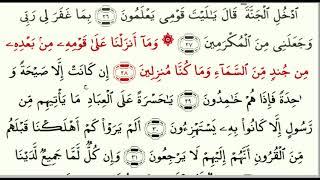 ٱدۡخُلِ ٱلۡجَنَّةَۖ قَالَ يَٰلَيۡتَ قَوۡمِي يَعۡلَمُونَ ٢٦ بِمَا غَفَرَ لِي رَبِّي
وَجَعَلَنِي مِنَ ٱلۡمُكۡرَمِينَ ٢٧ ۞ وَمَآ أَنزَلۡنَا عَلَىٰ قَوۡمِهِۦ مِنۢ بَعۡدِهِۦ
مِن جُندٖ مِّنَ ٱلسَّمَآءِ وَمَا كُنَّا مُنزِلِينَ ٢٨ إِن كَانَتۡ إِلَّا صَيۡحَةٗ وَٰ
حِدَةٗ فَإِذَا هُمۡ خَٰمِدُونَ ٢٩ يَٰحَسۡرَةً عَلَى ٱلۡعِبَادِۚ مَا يَأۡتِيهِم مِّن
رَّسُولٍ إِلَّا كَانُواْ بِهِۦ يَسۡتَهۡزِءُونَ ٣٠ أَلَمۡ يَرَوۡاْ كَمۡ أَهۡلَكۡنَا قَبۡلَهُم
مِّنَ ٱلۡقُرُونِ أَنَّهُمۡ إِلَيۡهِمۡ لَا يَرۡجِعُونَ ٣١ وَإِن كُلّٞ لَّمَّا جَمِيعٞ لَّدَيۡنَا